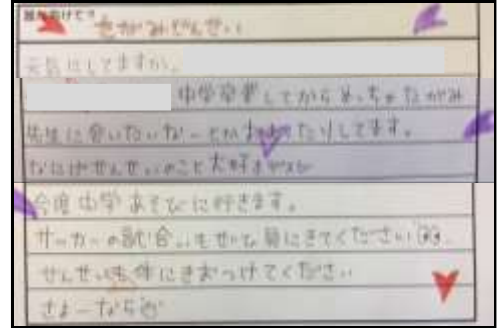 たがみせんせい
元気にしてますか。
中学卒業してからめっちゃたがみ
先生に会いたいなーとかおもったりしてます。
なにげせんせいのこと大好き
今度中学あそびに行きます。
サッカーの試合いもぜひ見にきてください
せんせいも体にきおつけてください
さよーなら